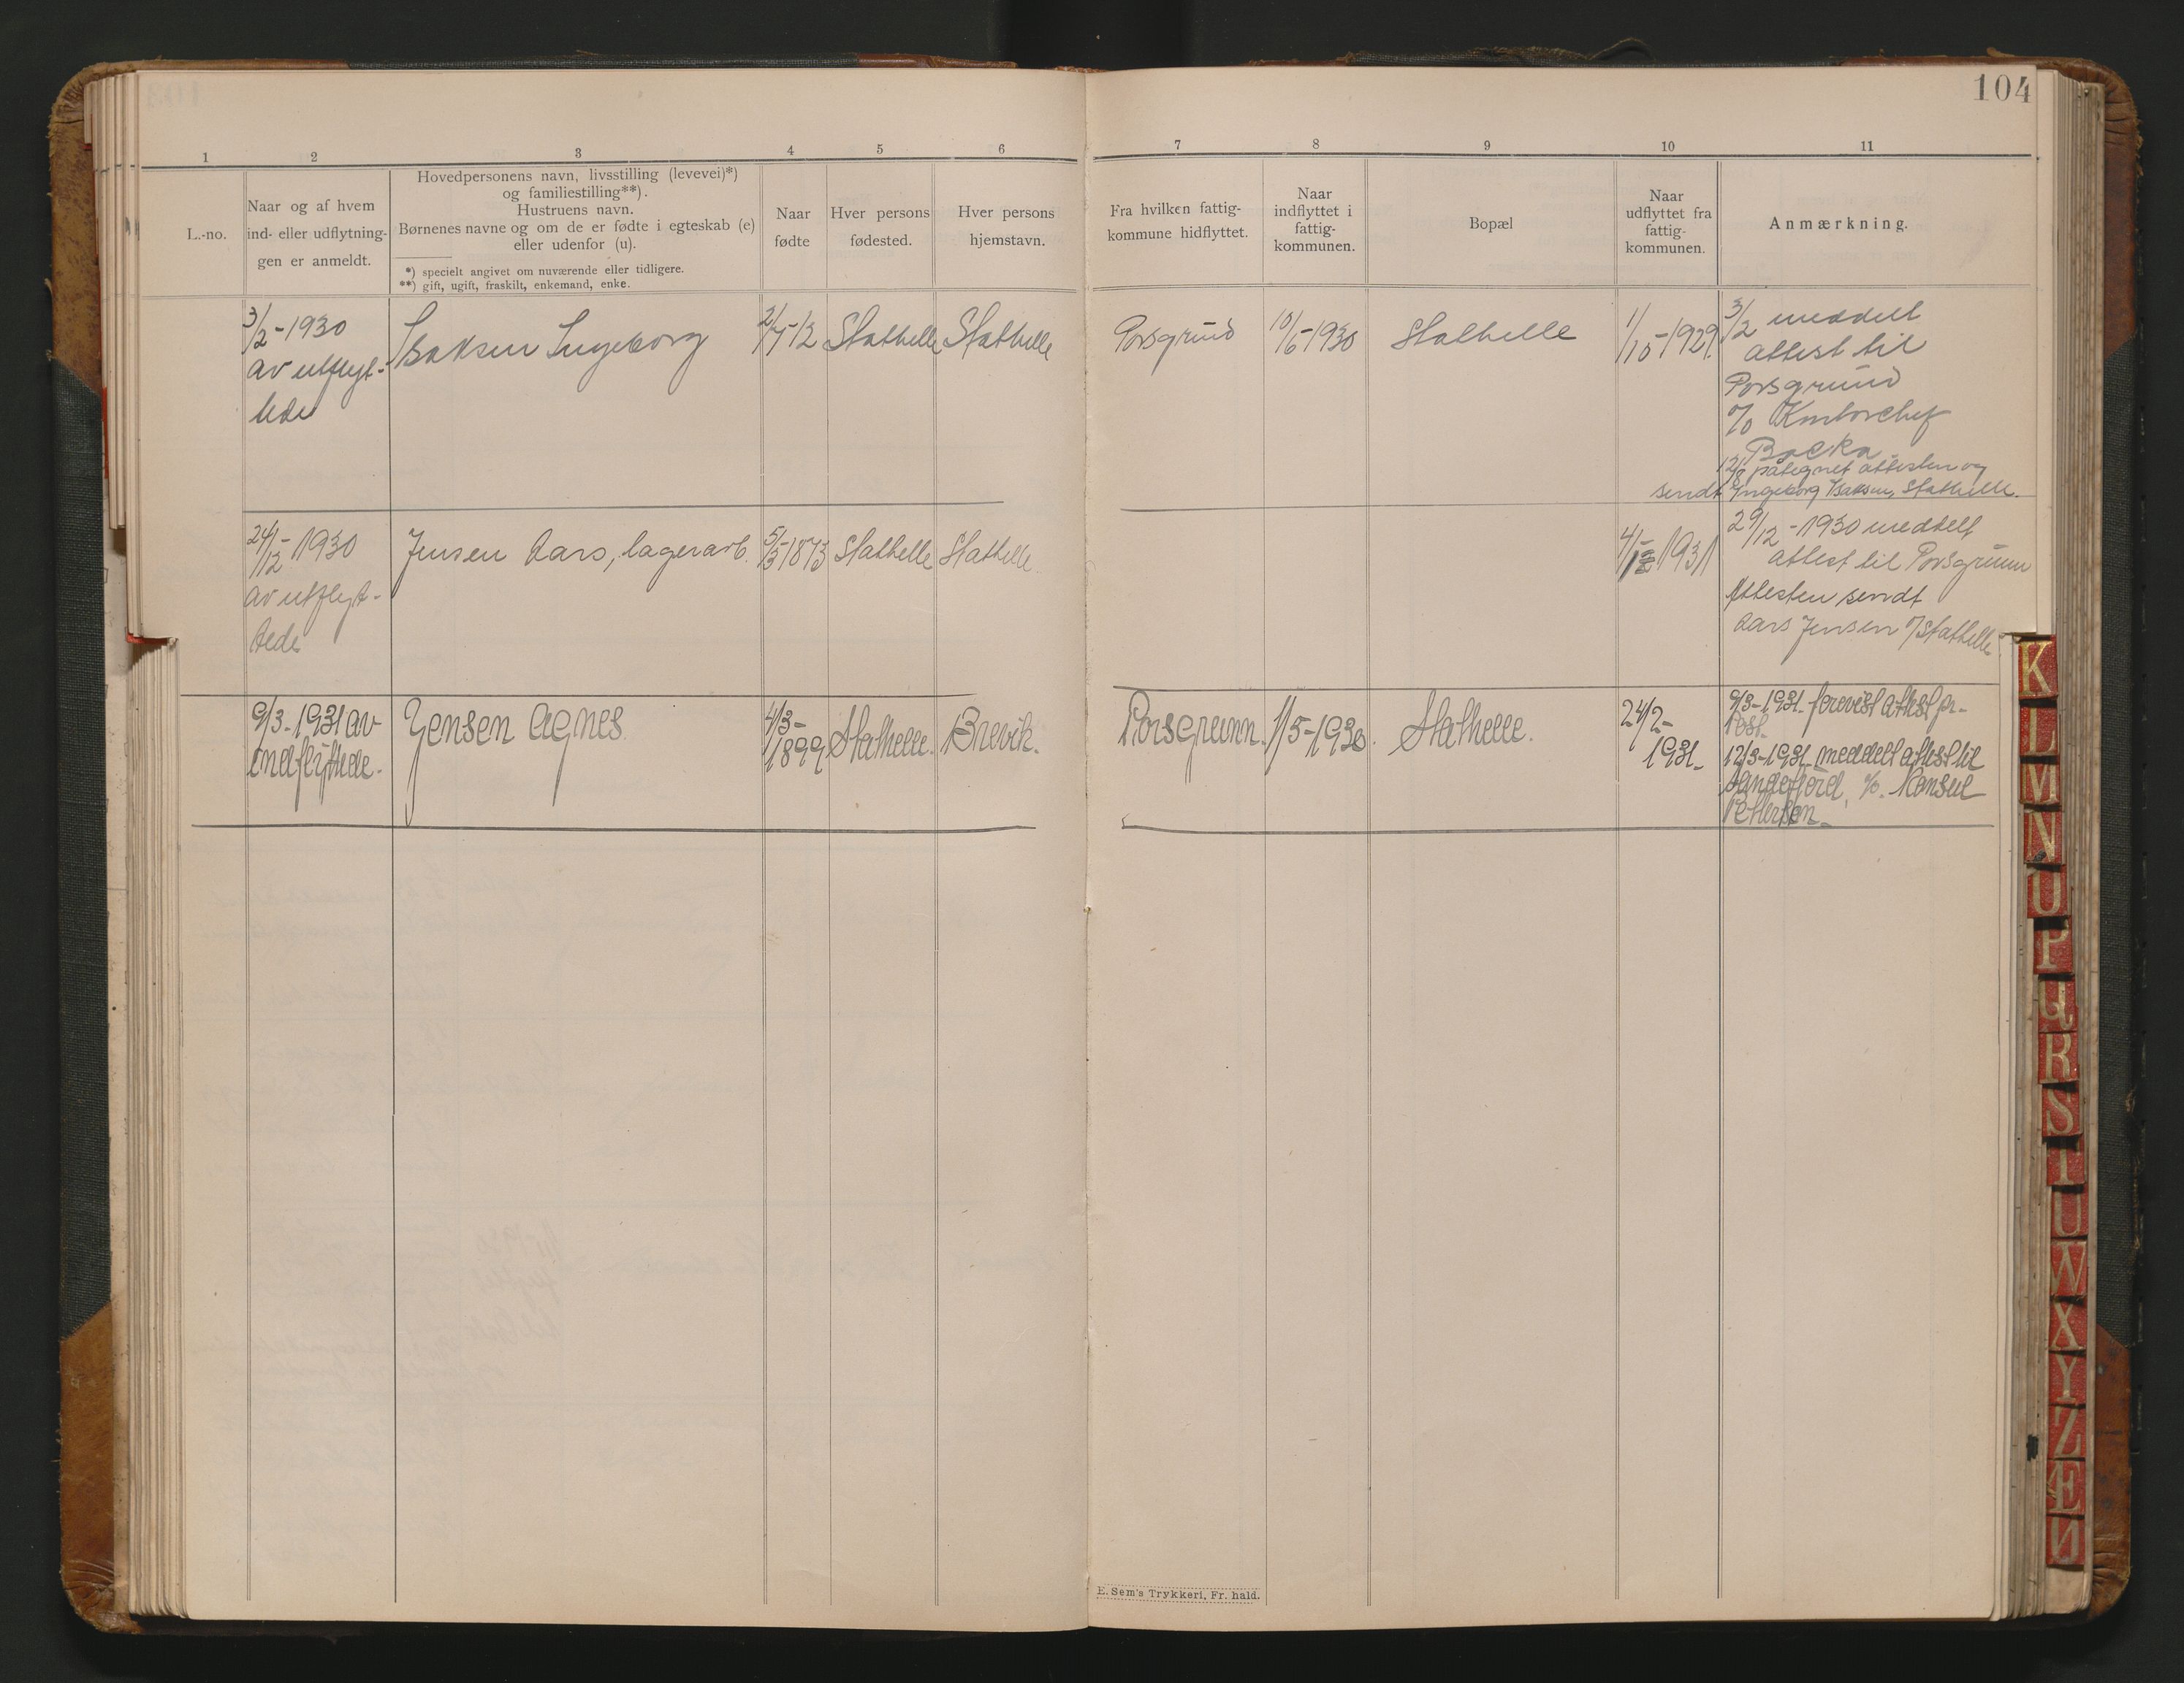 104
1 2 3 4 5 6 7 8 9 10 11
L.-no.
Naar og af hvem
ind- eller udflytnin-
gen er anmeldt.
Hovedpersonens navn, livsstilling (levevei)*)
og familiestilling**).
Hustruens navn.
Børnenes navne og om de er fødte i egteskab (e)
eller udenfor (u).
*) specielt angivet om nuværende eller tidligere.
**) gift, ugift, fraskilt, enkemand, enke.
Naar
fødte
Hver persons
fødested.
Hver persons
hjemstavn.
Fra hvilken fattig-
kommune hidflyttet.
Naar
indflyttet i
fattig-
kommunen.
Bopæl
Naar
udflyttet fra
fattig-
kommunen.
Anmærkning.
3/2-1930
av utflyt-
tede
Isaksen Ingeborg
2/7-12
Stathelle
Stathelle
Porsgrund
10/6-1930
Stathelle
1/10-1929.
3/2 meddelt
attest til
Porsgrund
o/o Kontorchef
12/8 påtegnet attesten og
sendt Ingeborg Isaksen, Stathelle.
24/12-1930
av utflyt-
tede
Jensen Lars, lagerarb.
5/3-1873
Stathelle
Stathelle.
1931
29/12-1930 meddelt
attest til Porsgrunn
Attesten sendt
Lars Jensen o/ Stathelle.
9/3-1931 av
indflyttede.
Jensen Agnes
4/3-
1899
Stathelle.
Brevik.
Porsgrunn.
1/5-1930.
Stathelle.
24/2-
1931-
9/3-1931- forevist attest pr-
Post.
12/3-1931- meddelt attest til
Sandefjord, c/o. Konsul
Pettersen-
E. Sem's Trykkeri, Fr. hald.
K
L
M
N
O
P
Q
R
S
T
U
W
X
Y
Z
Æ
Ø